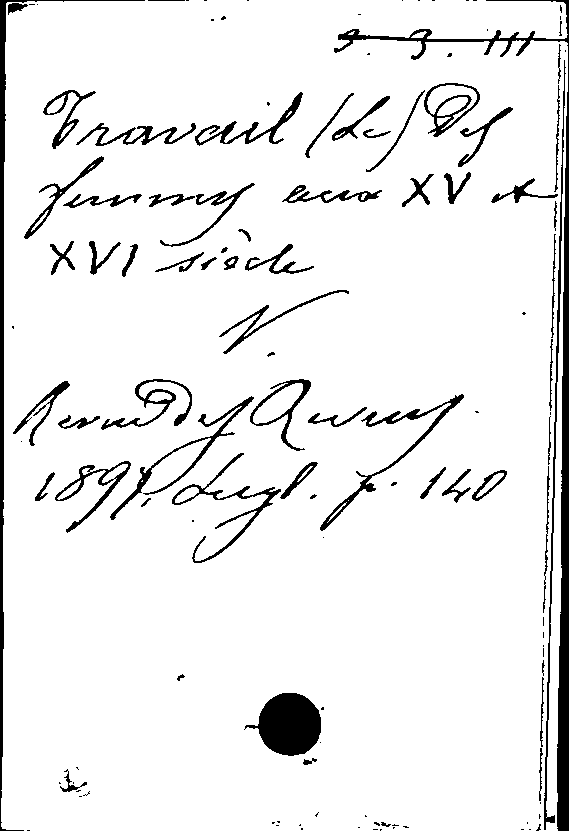 3. 3. III
Travail (Le) Des
femmes aux XV et
XVI siècle
V.
Revue des Revues
1897, Lugl. p. 140